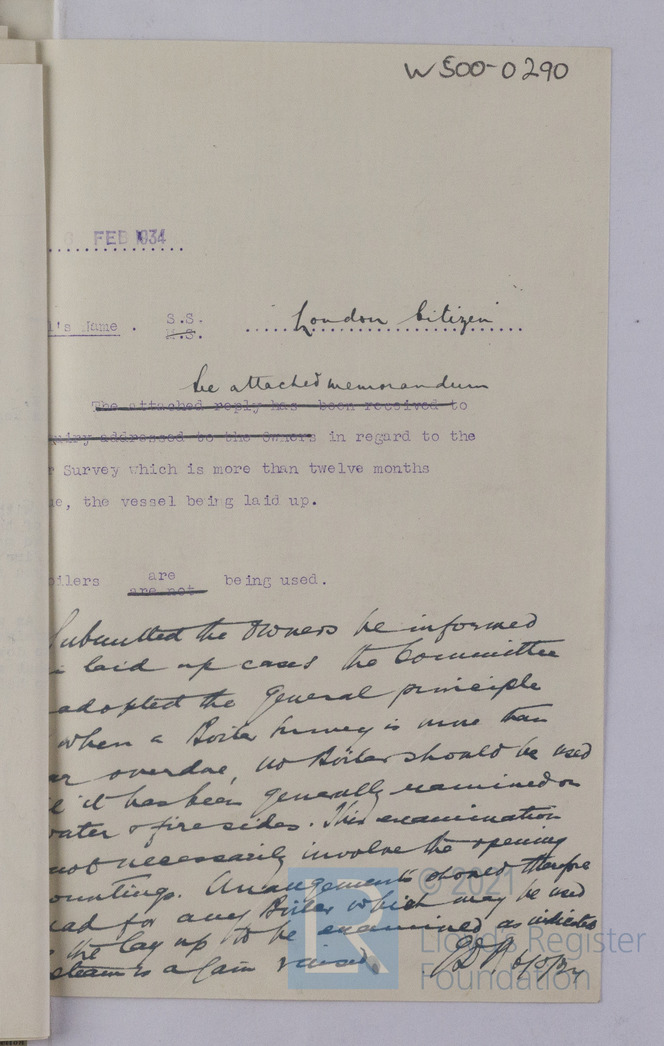 W500-0290
6 FEB 1934
l's Name. S.S.
M.S.
London Citizen
See attached memorandum
The attached reply has been received to
quiry addressed to the Owners in regard to the
r Survey which is more than twelve months
ue, the vessel being laid up.
oilers are
are not being used.
Submitted the Owners be informed
laid up cases the Committee
adopted the general principle
when a Boiler Survey is more than
ar overdue, no Boiler should be used
l it has been generally examined on
water & fire sides. This examination
not necessarily involve the opening
ountings. Arrangements should therefore
for any Boiler which may be used
the lay up to be examined as indicated
steam is again raised.
© 2021
Lloyd's Register
Foundation
LR